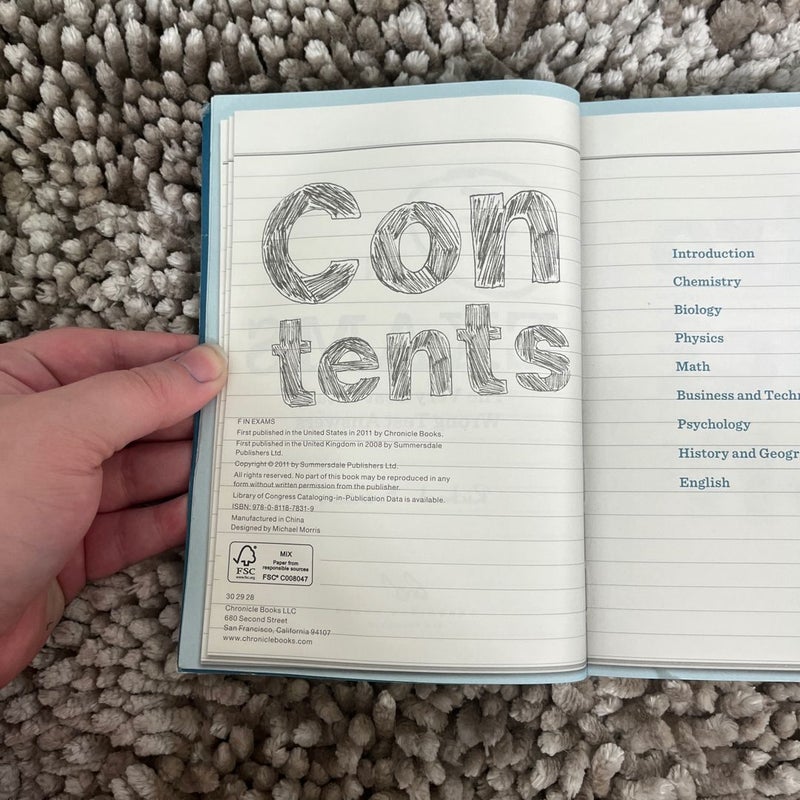 Con
tents
F IN EXAMS
First published in the United States in 2011 by Chronicle Books.
First published in the United Kingdom in 2008 by Summersdale
Publishers Ltd.
Copyright © 2011 by Summersdale Publishers Ltd.
All rights reserved. No part of this book may be reproduced in any
form without written permission from the publisher.
Library of Congress Cataloging-in-Publication Data is available.
ISBN: 978-0-8118-7831-9
Manufactured in China
Designed by Michael Morris
FSC
www.fsc.org
MIX
Paper from
responsible sources
FSC® C008047
30 29 28
Chronicle Books LLC
680 Second Street
San Francisco, California 94107
www.chroniclebooks.com
Introduction
Chemistry
Biology
Physics
Math
Business and Techn
Psychology
History and Geogr
English